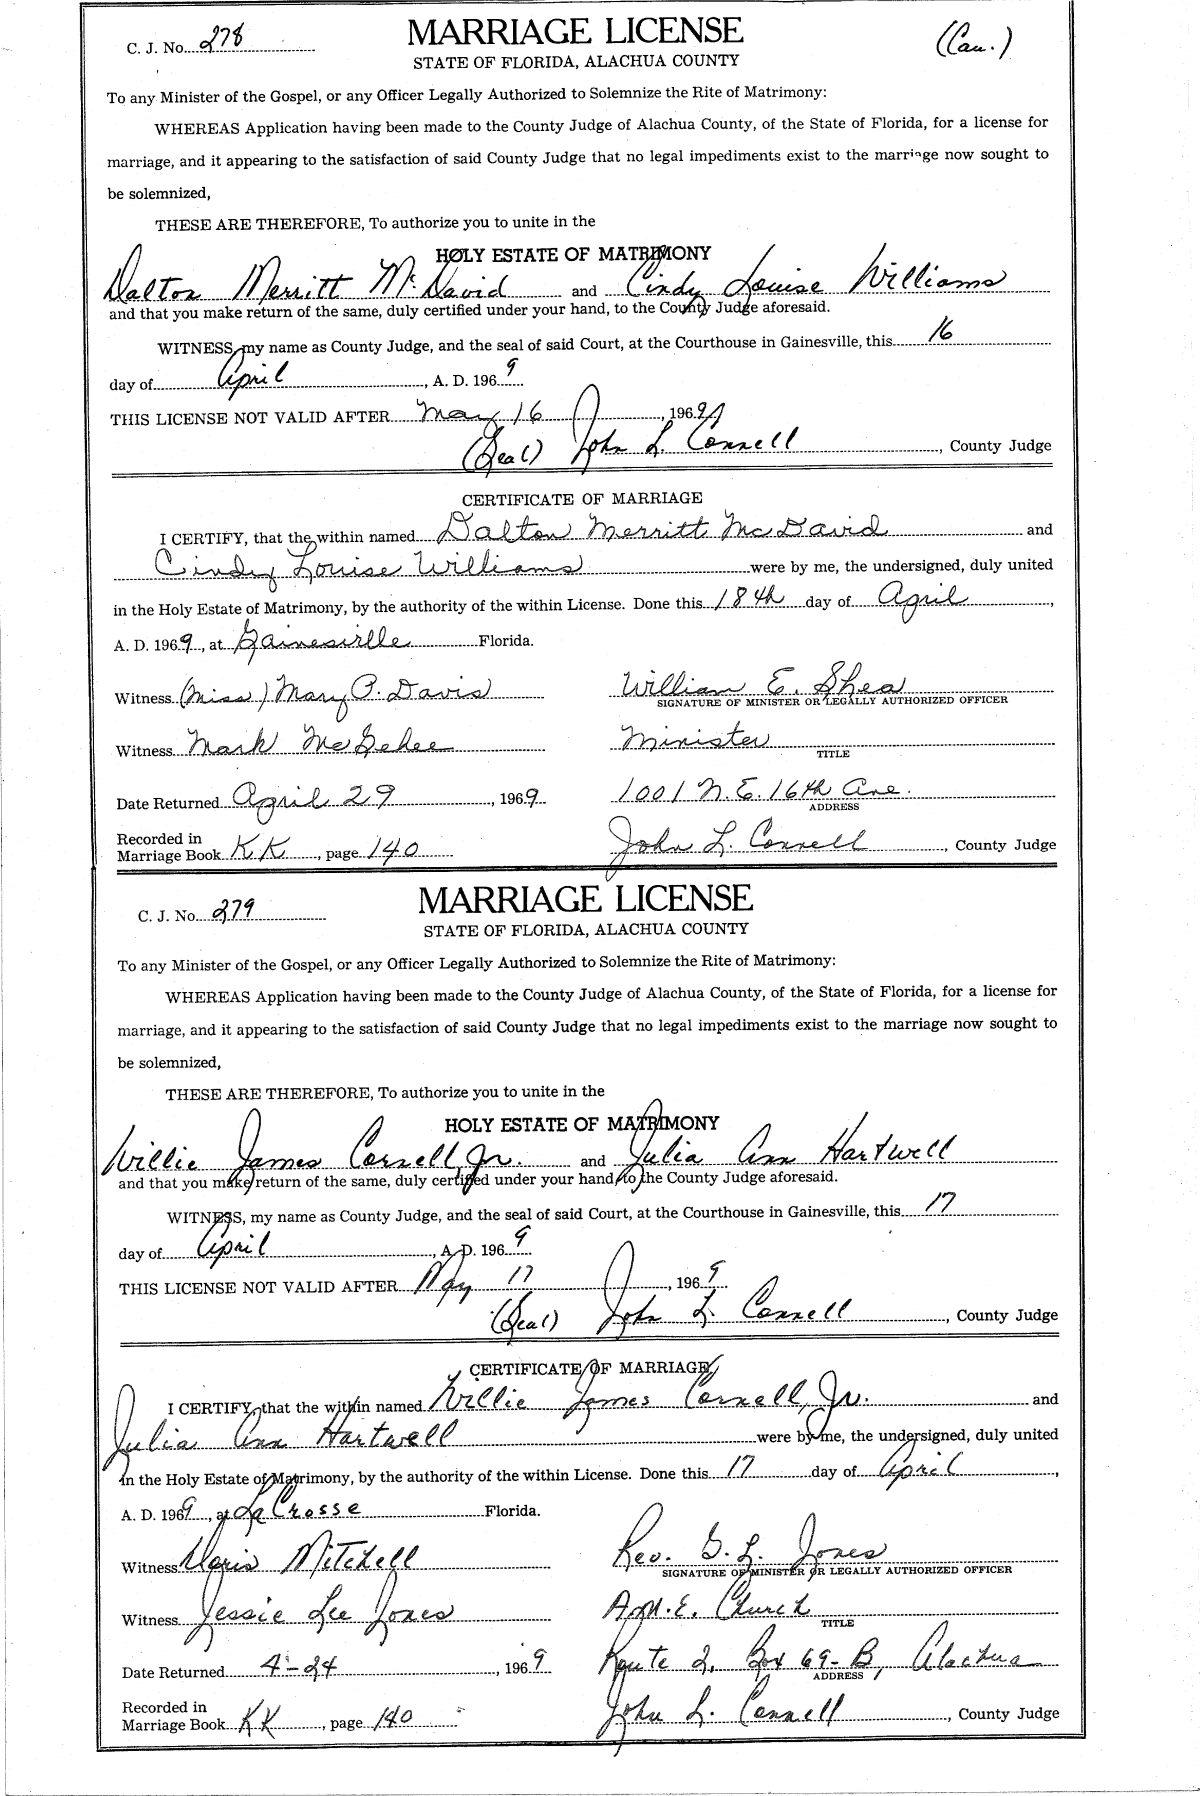 C. J. No. 278 MARRIAGE LICENSE (Cau.)
STATE OF FLORIDA, ALACHUA COUNTY
To any Minister of the Gospel, or any Officer Legally Authorized to Solemnize the Rite of Matrimony:
WHEREAS Application having been made to the County Judge of Alachua County, of the State of Florida, for a license for
marriage, and it appearing to the satisfaction of said County Judge that no legal impediments exist to the marriage now sought to
be solemnized,
THESE ARE THEREFORE, To authorize you to unite in the
HOLY ESTATE OF MATRIMONY
Dalton Merritt McDavid and Cindy Louise Williams
and that you make return of the same, duly certified under your hand, to the County Judge aforesaid.
WITNESS, my name as County Judge, and the seal of said Court, at the Courthouse in Gainesville, this 16
day of April, A. D. 1969
THIS LICENSE NOT VALID AFTER May 16, 1969
(Seal) John L. Connell, County Judge
CERTIFICATE OF MARRIAGE
I CERTIFY, that the within named Dalton Merritt McDavid and
Cindy Louise Williams were by me, the undersigned, duly united
in the Holy Estate of Matrimony, by the authority of the within License. Done this 18th day of April,
A. D. 1969, at Gainesville Florida.
Witness (Miss) Mary P. Davis William E. Shea
SIGNATURE OF MINISTER OR LEGALLY AUTHORIZED OFFICER
Witness Mark McGehee Minister
TITLE
Date Returned April 29, 1969 1001 N.E. 16th Ave.
ADDRESS
Recorded in
Marriage Book KK, page 140 John L. Connell, County Judge
C. J. No. 279 MARRIAGE LICENSE
STATE OF FLORIDA, ALACHUA COUNTY
To any Minister of the Gospel, or any Officer Legally Authorized to Solemnize the Rite of Matrimony:
WHEREAS Application having been made to the County Judge of Alachua County, of the State of Florida, for a license for
marriage, and it appearing to the satisfaction of said County Judge that no legal impediments exist to the marriage now sought to
be solemnized,
THESE ARE THEREFORE, To authorize you to unite in the
HOLY ESTATE OF MATRIMONY
Willie James Cornell, Jr. and Julia Ann Hartwell
and that you make return of the same, duly certified under your hand, to the County Judge aforesaid.
WITNESS, my name as County Judge, and the seal of said Court, at the Courthouse in Gainesville, this 17
day of April, A. D. 1969
THIS LICENSE NOT VALID AFTER May 17, 1969
(Seal) John L. Connell, County Judge
CERTIFICATE OF MARRIAGE
I CERTIFY, that the within named Willie James Cornell, Jr. and
Julia Ann Hartwell were by me, the undersigned, duly united
in the Holy Estate of Matrimony, by the authority of the within License. Done this 17 day of April,
A. D. 1969, at La Crosse Florida.
Witness Doris Mitchell Rev. G. L. Jones
SIGNATURE OF MINISTER OR LEGALLY AUTHORIZED OFFICER
Witness Jessie Lee Jones A.M.E. Church
TITLE
Date Returned 4-24, 1969 Route 2, Box 69-B, Alachua
ADDRESS
Recorded in
Marriage Book KK, page 140 John L. Connell, County Judge